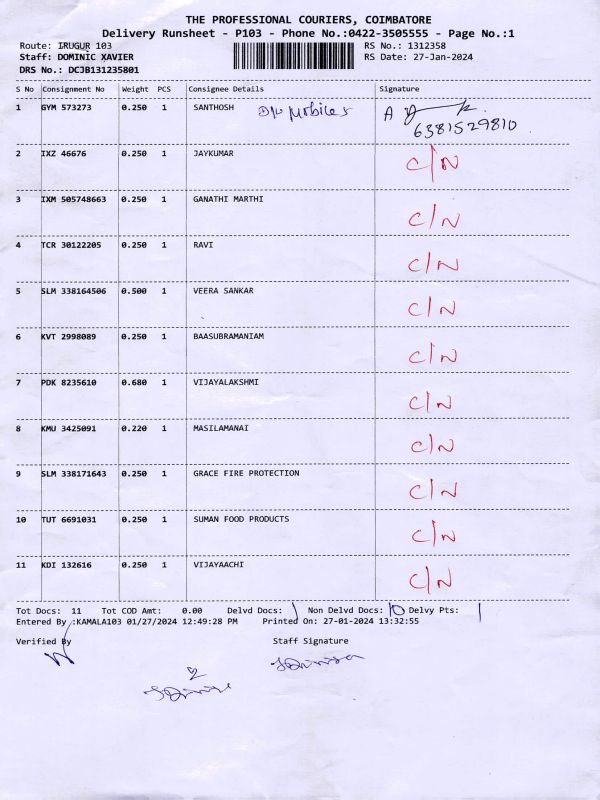 THE PROFESSIONAL COURIERS, COIMBATORE
Delivery Runsheet - P103 - Phone No.:0422-3505555 - Page No.:1
Route: IRUGUR 103 RS No.: 1312358
Staff: DOMINIC XAVIER RS Date: 27-Jan-2024
DRS No.: DCJB131235801
S No Consignment No Weight PCS Consignee Details Signature
1 GYM 573273 0.250 1 SANTHOSH Mobiles A
6381529810
2 IXZ 46676 0.250 1 JAYKUMAR C/N
3 IXM 505748663 0.250 1 GANATHI MARTHI C/N
4 TCR 30122205 0.250 1 RAVI C/N
5 SLM 338164506 0.500 1 VEERA SANKAR C/N
6 KVT 2998089 0.250 1 BAASUBRAMANIAM C/N
7 PDK 8235610 0.680 1 VIJAYALAKSHMI C/N
8 KMU 3425091 0.220 1 MASILAMANAI C/N
9 SLM 338171643 0.250 1 GRACE FIRE PROTECTION C/N
10 TUT 6691031 0.250 1 SUMAN FOOD PRODUCTS C/N
11 KDI 132616 0.250 1 VIJAYAACHI C/N
Tot Docs: 11 Tot COD Amt: 0.00 Delvd Docs: 1 Non Delvd Docs: 10 Delvy Pts: 1
Entered By :KAMALA103 01/27/2024 12:49:28 PM Printed On: 27-01-2024 13:32:55
Verified By Staff Signature